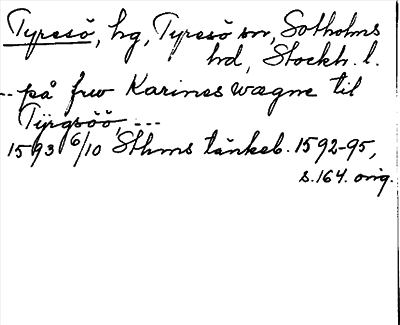 Tyresö, hg, Tyresö sn, Sotholms
hd, Stockh. l.
-- på frw Karines wægne til
Tyrgsöö, ---
1593 6/10 Sthms tänkeb. 1592-95,
s. 164. orig.